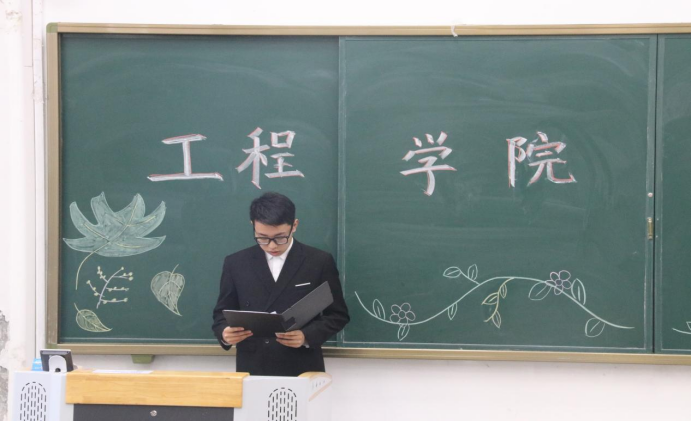 工程学院